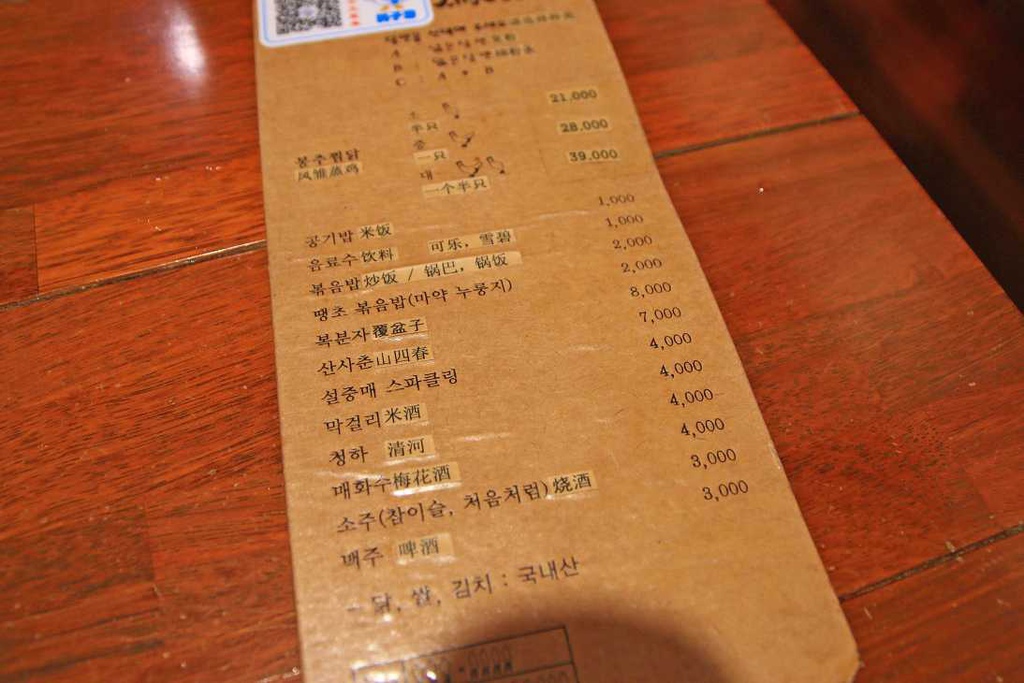 A
B
C : A + B
21,000
半只
중
28,000
一只
봉추찜닭
대
39,000
凤雏蒸鸡
一个半只
공기밥 米饭 1,000
음료수 饮料 可乐，雪碧 1,000
볶음밥 炒饭 / 锅巴，锅饭 2,000
땡초 볶음밥(마약 누룽지) 2,000
복분자 覆盆子 8,000
산사춘 山四春 7,000
설중매 스파클링 4,000
막걸리 米酒 4,000
청하 清河 4,000
매화수 梅花酒 4,000
소주(참이슬, 처음처럼) 烧酒 3,000
맥주 啤酒 3,000
- 닭, 쌀, 김치 : 국내산